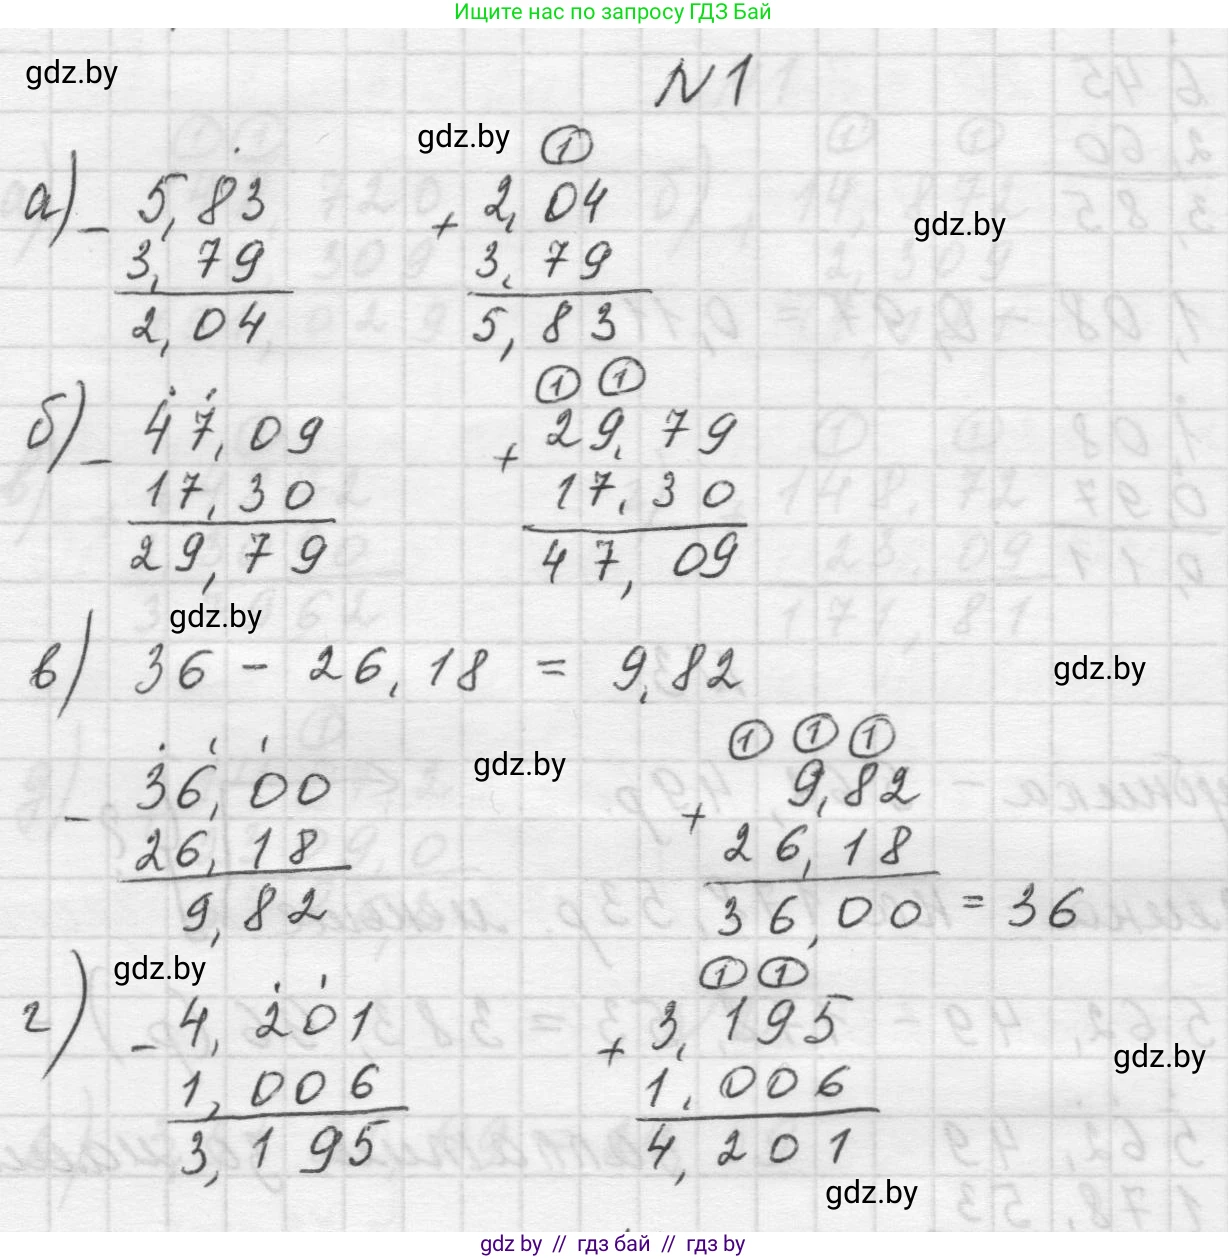 Ищите нас по запросу ГДЗ Бай
gdz.by
N1
gdz.by
а) - 5,83
3,79
2,04
1
+ 2,04
3,79
5,83
gdz.by
б) - 47,09
17,30
29,79
1 1
+ 29,79
17,30
47,09
gdz.by
в) 36 - 26,18 = 9,82
gdz.by
- 36,00
26,18
9,82
gdz.by
1 1 1
+ 9,82
26,18
36,00 = 36
gdz.by
г) - 4,201
1,006
3,195
1 1
+ 3,195
1,006
4,201
gdz.by
gdz.by
gdz.by // гдз бай // гдз by